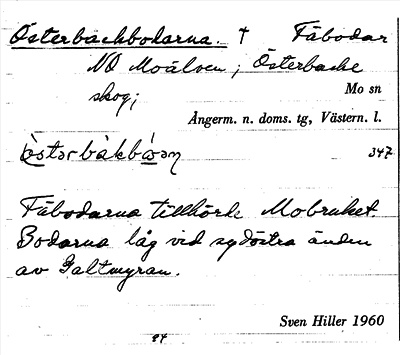 Österbackbodarna. † Fäbodar
NO Moälven; Österbacke
skog; Mo sn
Ångerm. n. doms. tg, Västern. l.
347
Fäbodarna tillhörde Mobruket.
Bodarna låg vid sydöstra änden
av Galtmyran.
Sven Hiller 1960